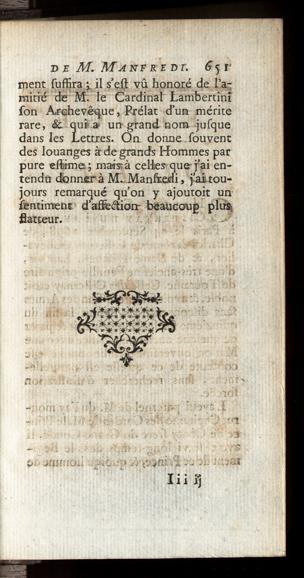 DE M. MANFREDI. 651
ment suffira; il s'est vû honoré de l'a-
mitié de M. le Cardinal Lambertini
son Archevêque, Prélat d'un mérite
rare, & qui a un grand nom jusque
dans les Lettres. On donne souvent
des louanges à de grands Hommes par
pure estime; mais à celles que j'ai en-
tendu donner à M. Manfredi, j'ai tou-
jours remarqué qu'on y ajoutoit un
sentiment d'affection beaucoup plus
flatteur.
Iii ij